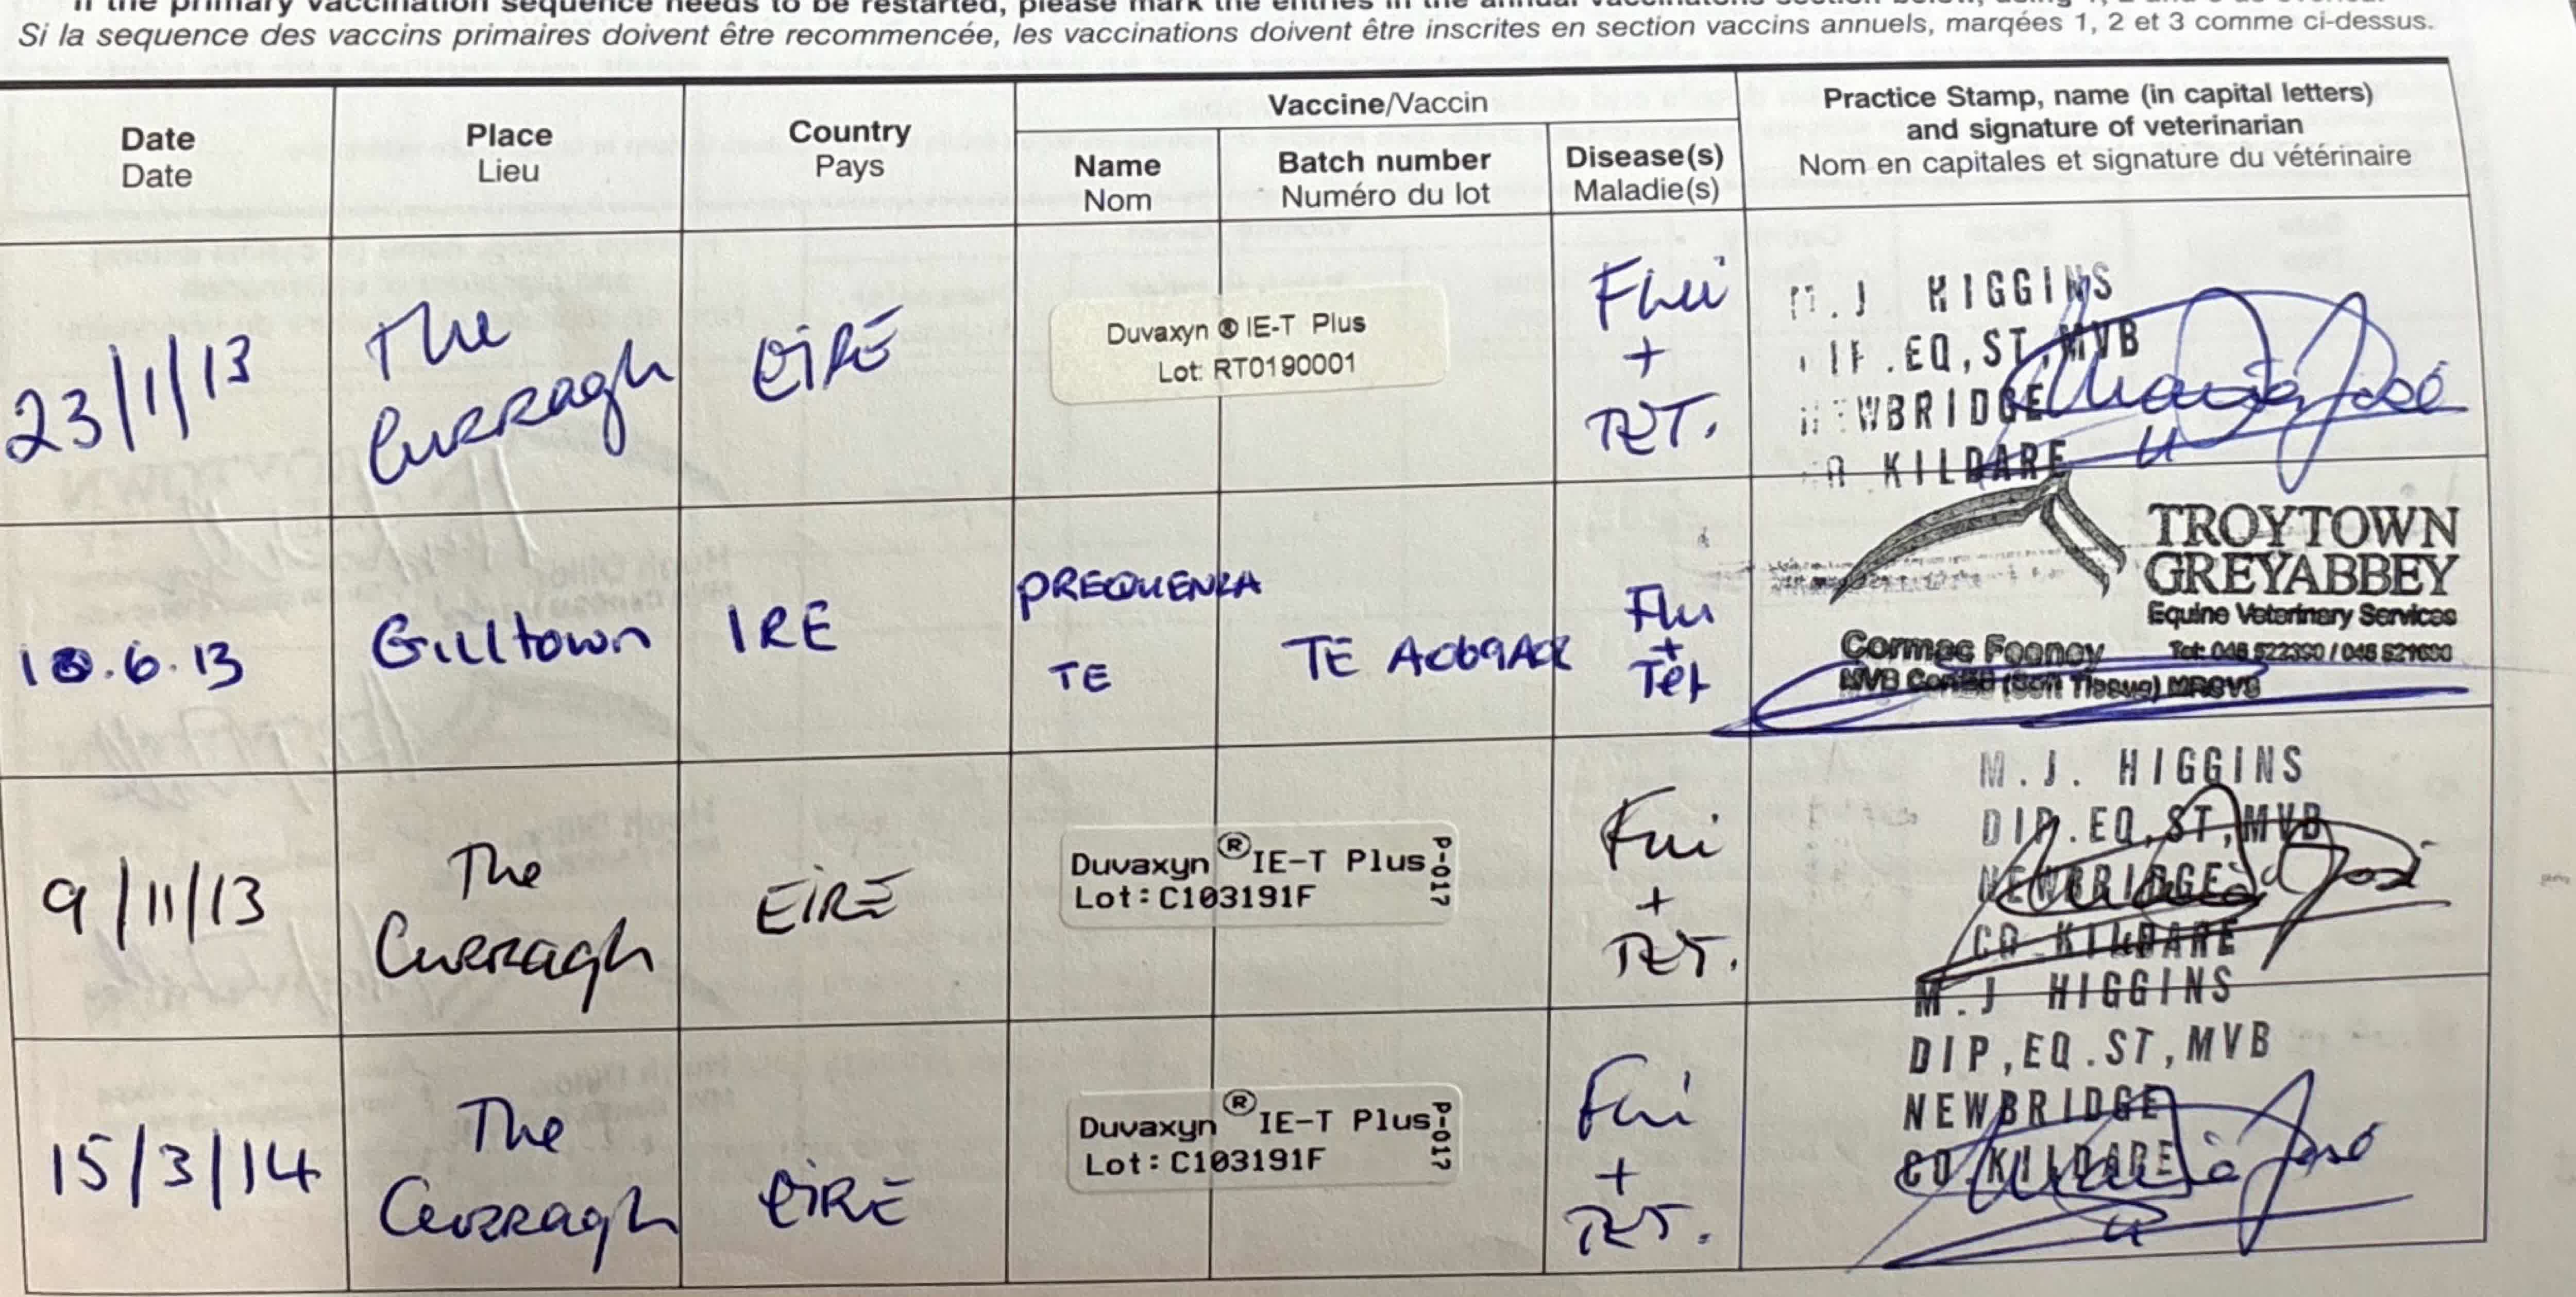 If the primary vaccination sequence needs to be restarted, please mark the entries in the annual
Si la sequence des vaccins primaires doivent être recommencée, les vaccinations doivent être inscrites en section vaccins annuels, marqées 1, 2 et 3 comme ci-dessus.
Date
Date
Place
Lieu
Country
Pays
Vaccine/Vaccin
Name
Nom
Batch number
Numéro du lot
Disease(s)
Maladie(s)
Practice Stamp, name (in capital letters)
and signature of veterinarian
Nom en capitales et signature du vétérinaire
23/1/13
The
Curragh
EIRE
Duvaxyn ® IE-T Plus
Lot: RT0190001
Flu
+
TET.
M.J HIGGINS
EQ,ST,MVB
NEWBRIDGE
KILDARE
.6.13
Gilltown
IRE
PREQUENZA
TE
TE
Flu
+
Tet
TROYTOWN
GREYABBEY
Equine Veterinary Services
Cormac Feeney
9/11/13
The
Curragh
EIRE
Duvaxyn ® IE-T Plus
Lot: C103191F
P-017
Flu
+
TET.
M.J. HIGGINS
DIP.EQ,ST,MVB
NEWBRIDGE
CO.KILDARE
15/3/14
The
Curragh
EIRE
Duvaxyn ® IE-T Plus
Lot: C103191F
P-017
Flu
+
TET.
M.J HIGGINS
DIP,EQ.ST,MVB
NEWBRIDGE
CO.KILDARE